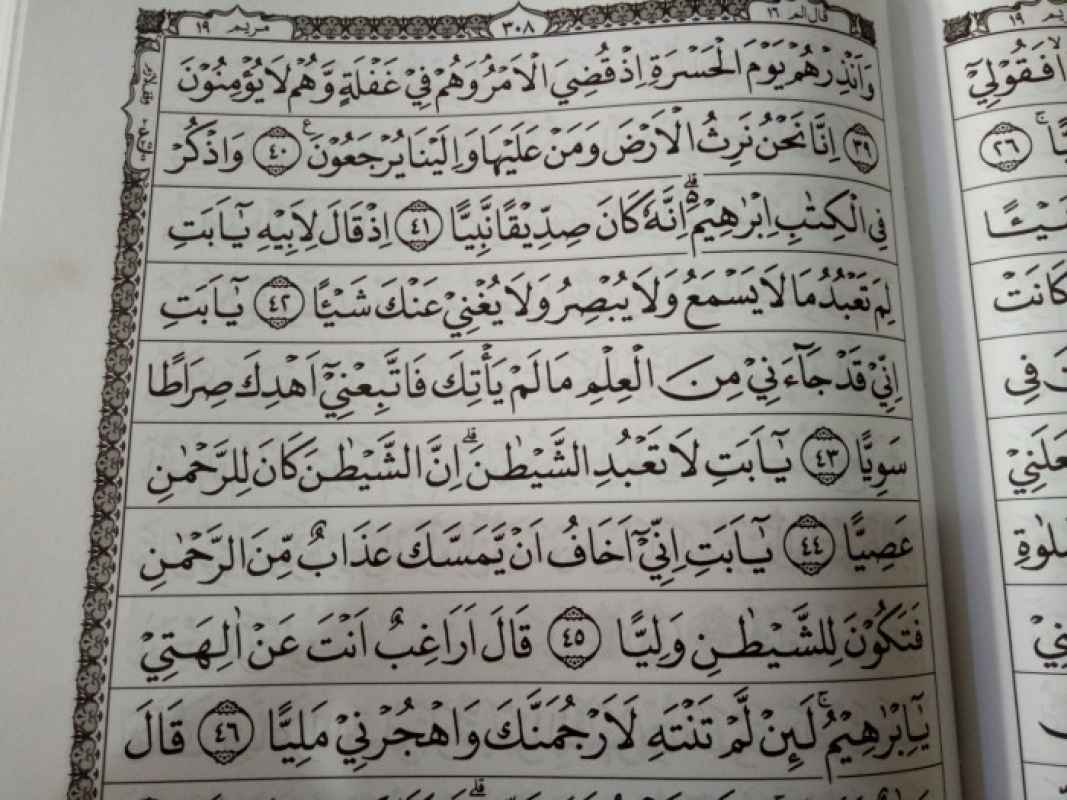 قال الم ١٦
٣٠٨
مريم ١٩
وَاَنْذِرْهُمْ يَوْمَ الْحَسْرَةِ اِذْ قُضِيَ الْاَمْرُ وَهُمْ فِيْ غَفْلَةٍ وَّهُمْ لَا يُؤْمِنُوْنَ
﴿٣٩﴾ اِنَّا نَحْنُ نَرِثُ الْاَرْضَ وَمَنْ عَلَيْهَا وَاِلَيْنَا يُرْجَعُوْنَ ࣖ ﴿٤٠﴾ وَاذْكُرْ
فِى الْكِتٰبِ اِبْرٰهِيْمَ ەۗ اِنَّهٗ كَانَ صِدِّيْقًا نَّبِيًّا ﴿٤١﴾ اِذْ قَالَ لِاَبِيْهِ يٰٓاَبَتِ
لِمَ تَعْبُدُ مَا لَا يَسْمَعُ وَلَا يُبْصِرُ وَلَا يُغْنِيْ عَنْكَ شَيْـًٔا ﴿٤٢﴾ يٰٓاَبَتِ
اِنِّيْ قَدْ جَاۤءَنِيْ مِنَ الْعِلْمِ مَا لَمْ يَأْتِكَ فَاتَّبِعْنِيْٓ اَهْدِكَ صِرَاطًا
سَوِيًّا ﴿٤٣﴾ يٰٓاَبَتِ لَا تَعْبُدِ الشَّيْطٰنَۗ اِنَّ الشَّيْطٰنَ كَانَ لِلرَّحْمٰنِ
عَصِيًّا ﴿٤٤﴾ يٰٓاَبَتِ اِنِّيْٓ اَخَافُ اَنْ يَّمَسَّكَ عَذَابٌ مِّنَ الرَّحْمٰنِ
فَتَكُوْنَ لِلشَّيْطٰنِ وَلِيًّا ﴿٤٥﴾ قَالَ اَرَاغِبٌ اَنْتَ عَنْ اٰلِهَتِيْ
يٰٓاِبْرٰهِيْمُۚ لَىِٕنْ لَّمْ تَنْتَهِ لَاَرْجُمَنَّكَ وَاهْجُرْنِيْ مَلِيًّا ﴿٤٦﴾ قَالَ
١٩
فَقُوْلِيْٓ
﴿٢٦﴾
شَيْـًٔا
كَانَتْ
فِى